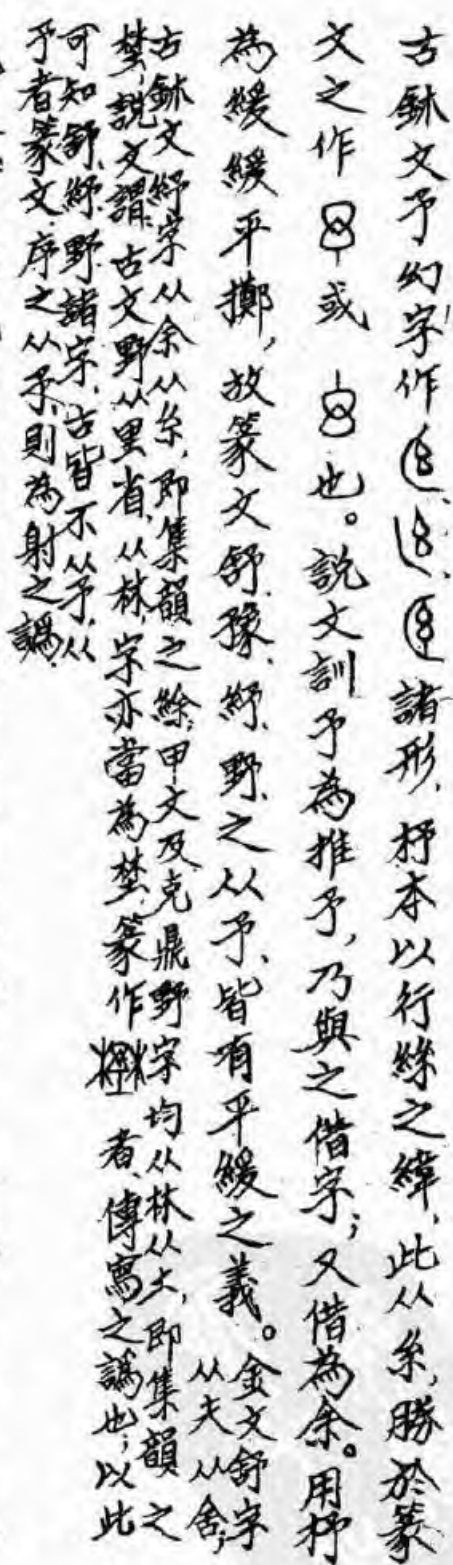 古鉥文予幻字作諸形，杼本以行絲之緯，此从糸，勝於篆
文之作或也。說文訓予為推予，乃與之借字；又借為余。用杼
為緩緩平擲，故篆文舒、豫、紓、野、之从予、皆有平緩之義。金文舒字
从夫从舍；
古鉥文紓字从余从糸，即集韻之絵；甲文及克鼎野字均从林从土，即集韻之
埜，說文謂古文野从里省，从林，字亦當為埜，篆作者，傳寫之譌也；以此
可知舒、紓、野諸字、古皆不从予，从
予者篆文，序之从予，則為射之譌，